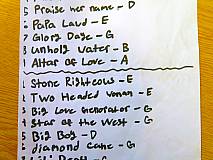 5 Praise her name - D
6 Papa Laud - E
7 Glory Daze - G
8 unholy water - B
9 Altar of Love - A
1 Stone Righteous - E
2 Two Headed Woman - E
3 Big Love Generator - G
4 Star of the West - G
5 Big Boy - D
6 diamond cane - G